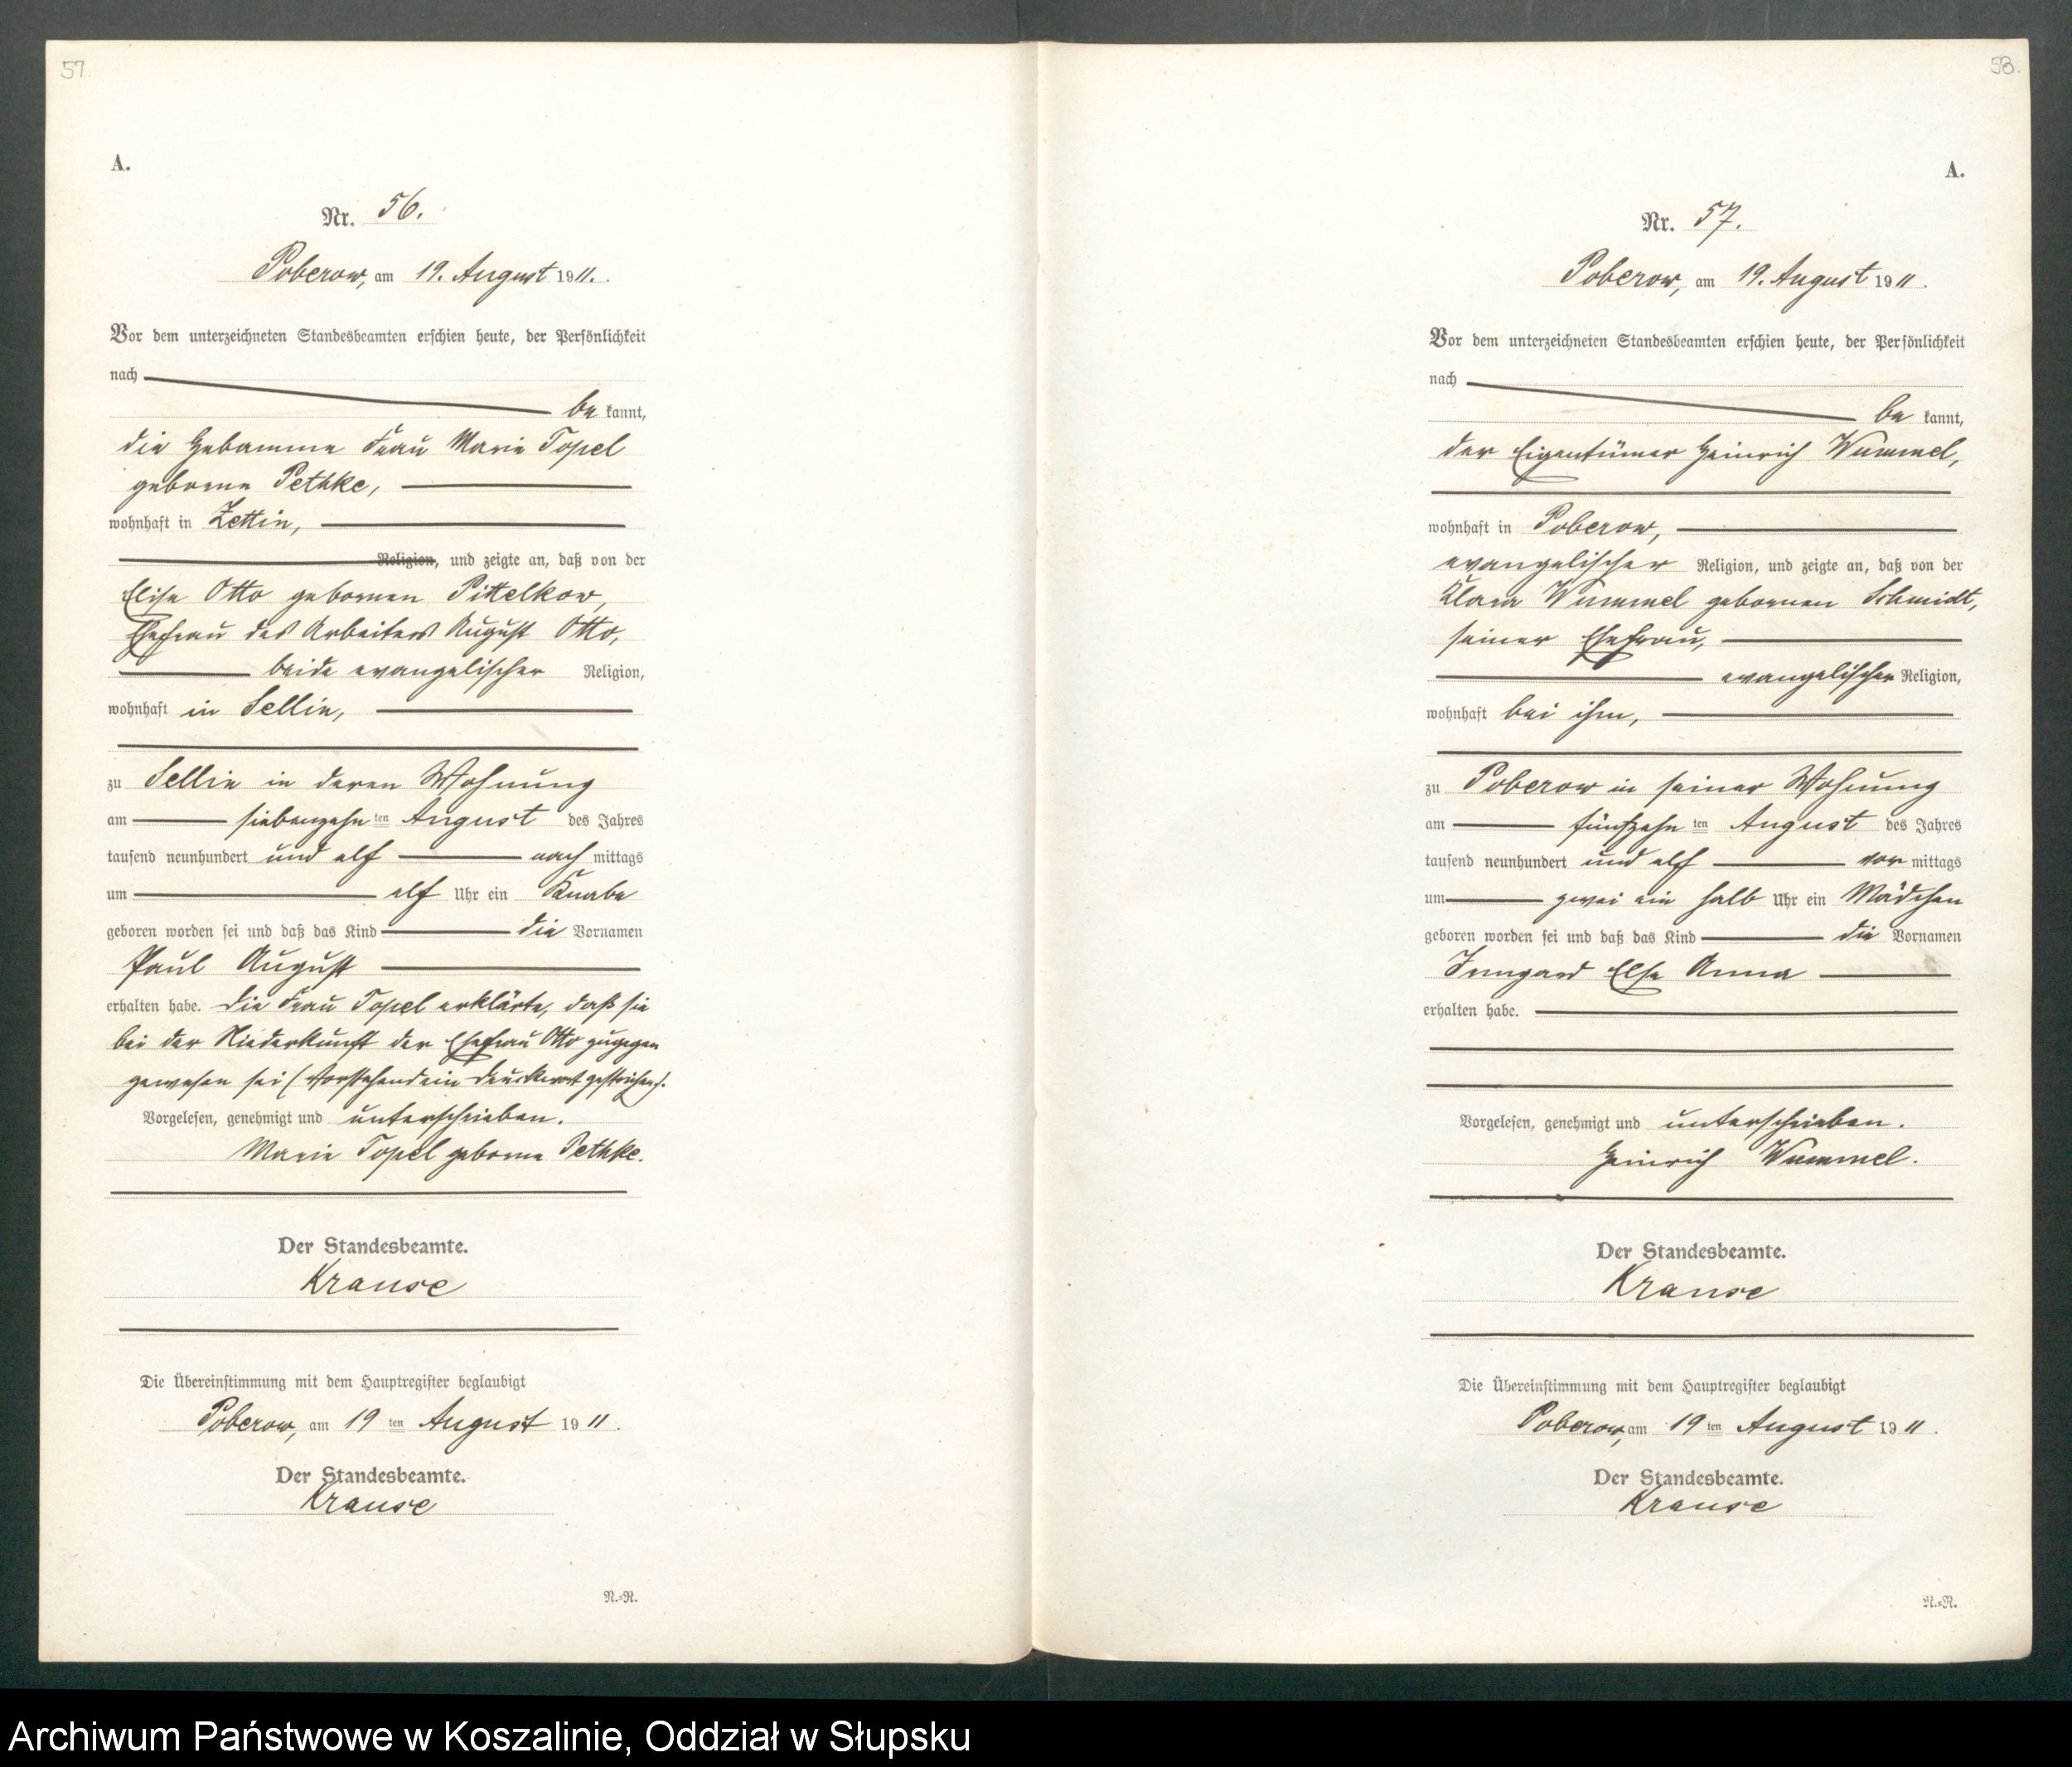 57.
A.
Nr. 56.
Poberow, am 19. August 1911.
Vor dem unterzeichneten Standesbeamten erschien heute, der Persönlichkeit
nach
be kannt,
die Hebamme Frau Marie Topel
geborne Pethke,
wohnhaft in Zettin,
Religion, und zeigte an, daß von der
Elise Otto gebornen Pittelkow,
Ehefrau des Arbeiters August Otto,
beide evangelischer Religion,
wohnhaft in Sellin,
zu Sellin in deren Wohnung
am siebenzehn ten August des Jahres
tausend neunhundert und elf nach mittags
um elf Uhr ein Knabe
geboren worden sei und daß das Kind die Vornamen
Paul August
erhalten habe. Die Frau Topel erklärte, daß sie
bei der Niederkunft der Ehefrau Otto zugegen
gewesen sei (Vorstehend ein Druckwort gestrichen).
Vorgelesen, genehmigt und unterschrieben.
Marie Topel geborne Pethke.
Der Standesbeamte.
Krause
Die Übereinstimmung mit dem Hauptregister beglaubigt
Poberow, am 19 ten August 1911.
Der Standesbeamte.
Krause
N.-R.
58.
A.
Nr. 57.
Poberow, am 19. August 1911.
Vor dem unterzeichneten Standesbeamten erschien heute, der Persönlichkeit
nach
be kannt,
der Eigentümer Heinrich Wummel,
wohnhaft in Poberow,
evangelischer Religion, und zeigte an, daß von der
Klara Wummel gebornen Schmidt,
seiner Ehefrau,
evangelischer Religion,
wohnhaft bei ihm,
zu Poberow in seiner Wohnung
am fünfzehn ten August des Jahres
tausend neunhundert und elf vor mittags
um zwei ein halb Uhr ein Mädchen
geboren worden sei und daß das Kind die Vornamen
Irmgard Else Anna
erhalten habe.
Vorgelesen, genehmigt und unterschrieben.
Heinrich Wummel.
Der Standesbeamte.
Krause
Die Übereinstimmung mit dem Hauptregister beglaubigt
Poberow, am 19 ten August 1911.
Der Standesbeamte.
Krause
N.-R.
Archiwum Państwowe w Koszalinie, Oddział w Słupsku